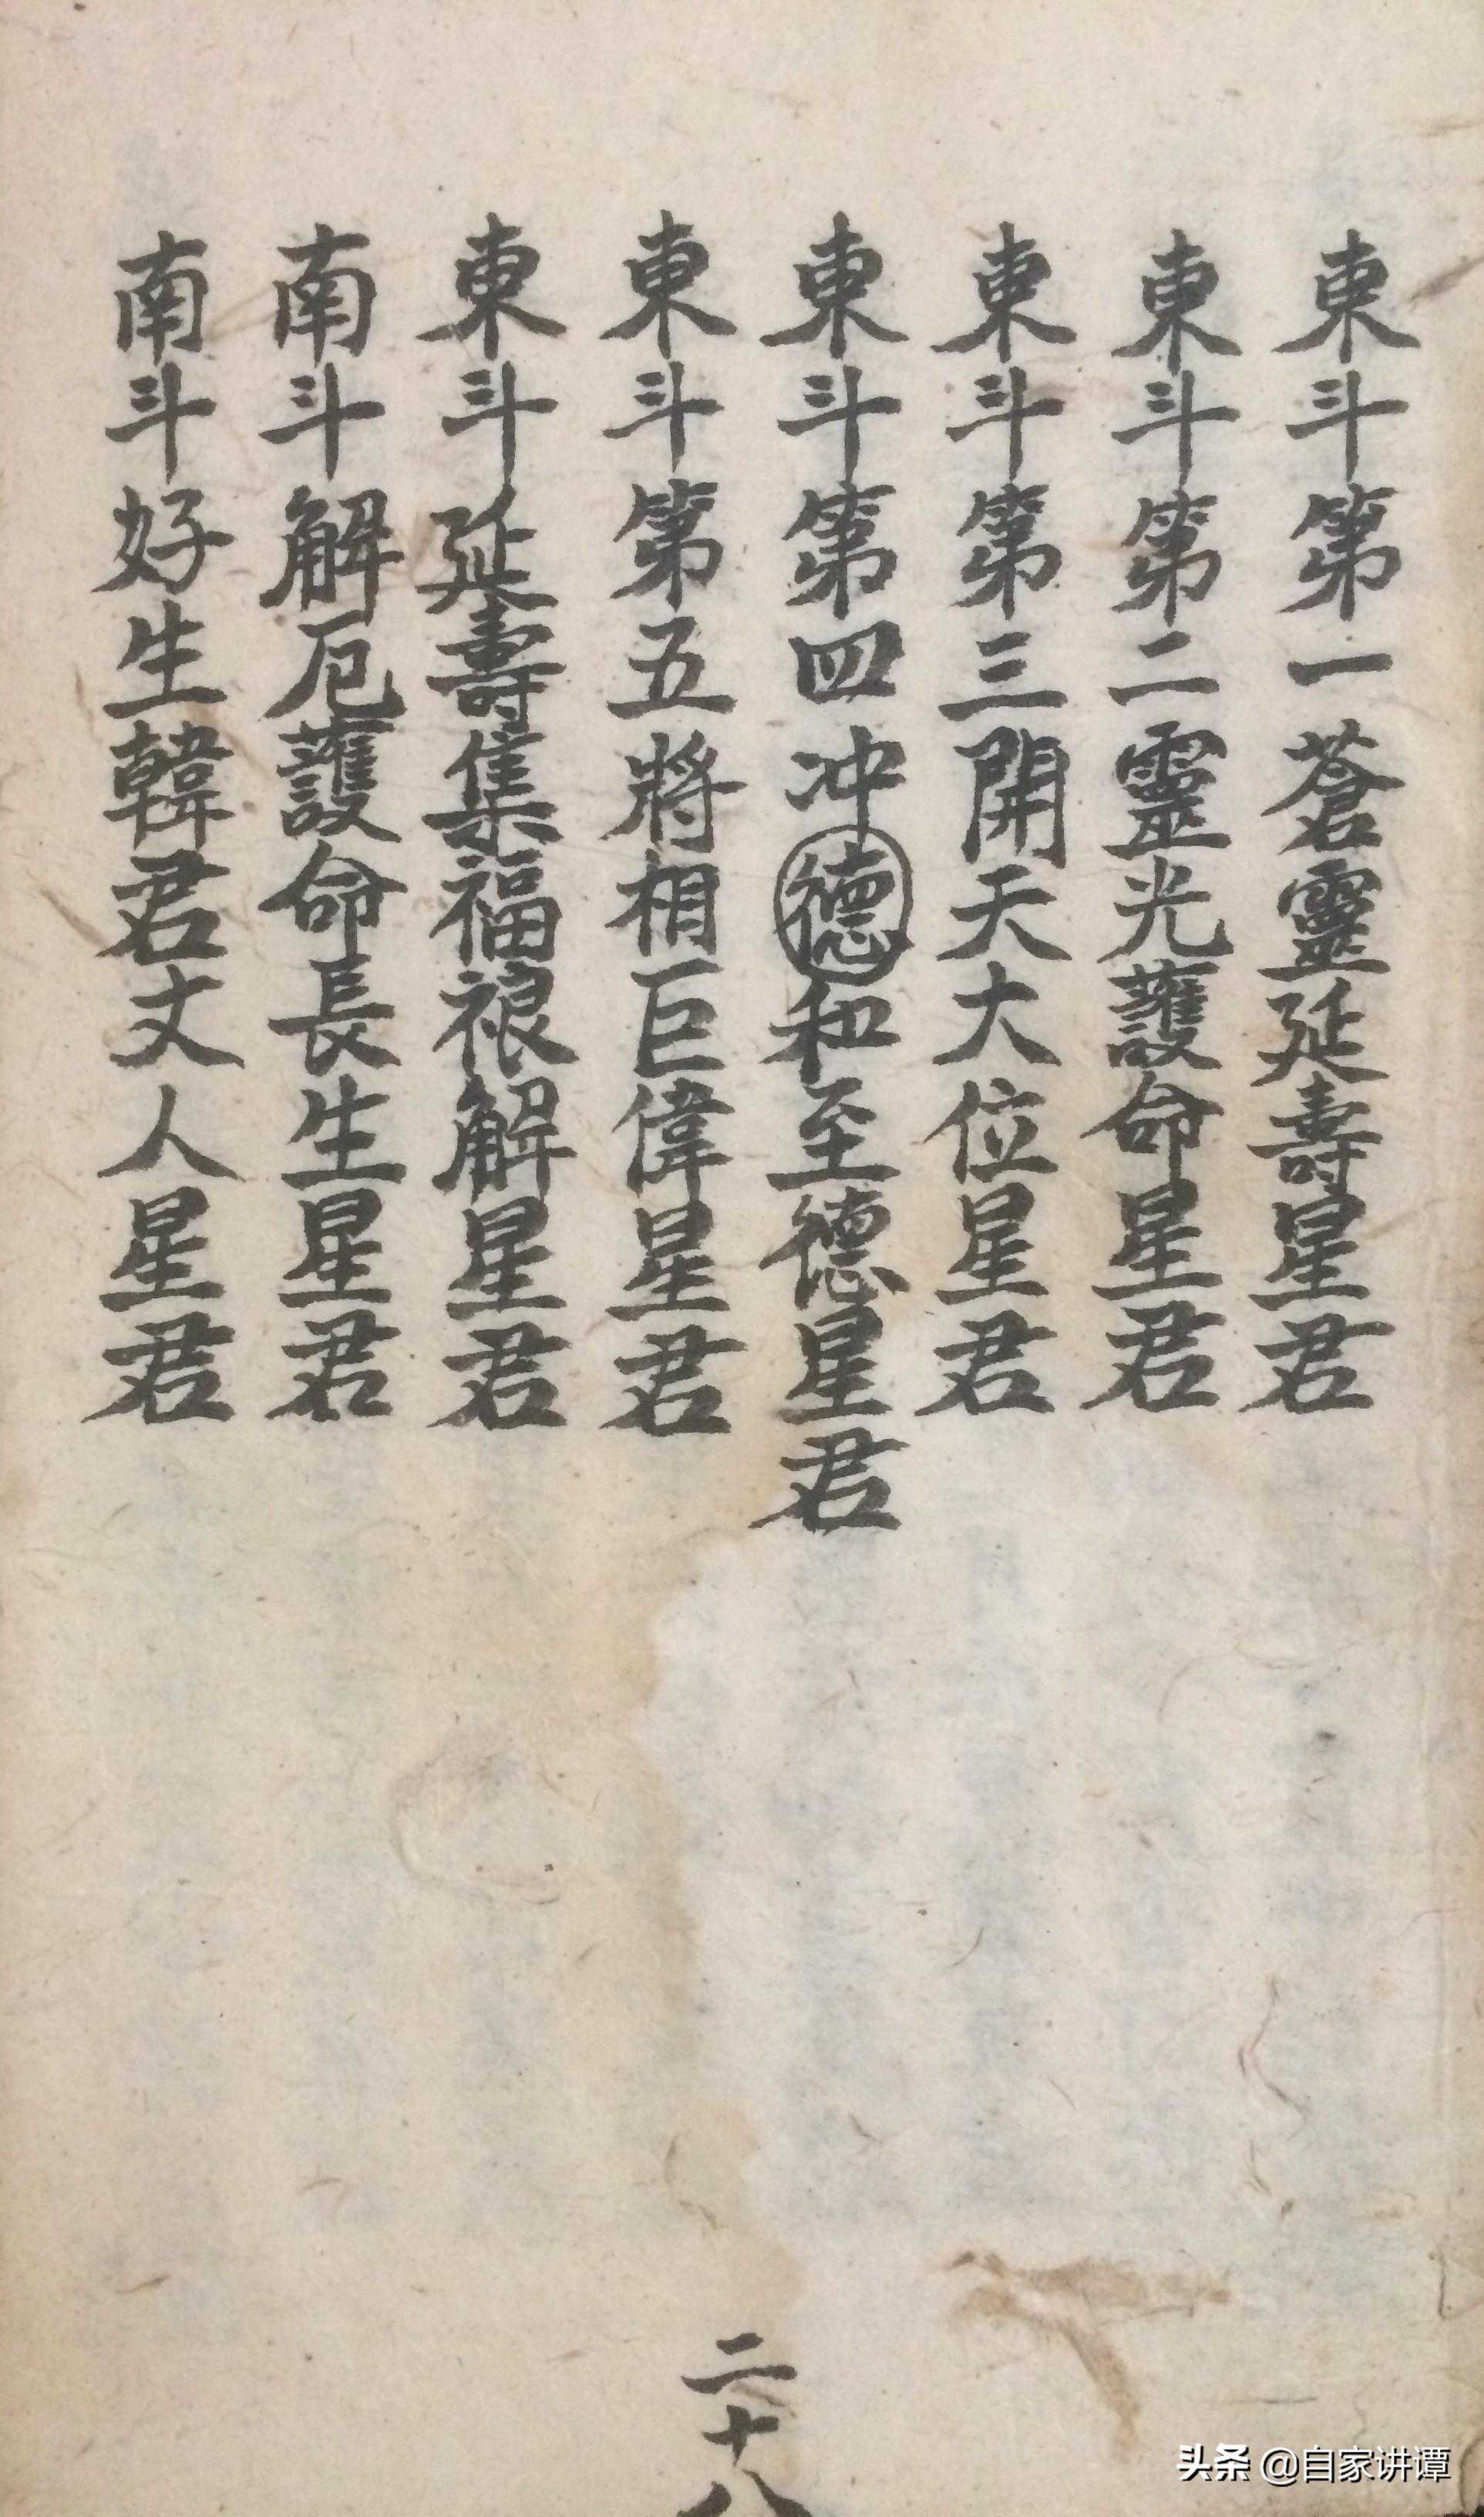 東斗第一蒼靈延壽星君
東斗第二靈光護命星君
東斗第三開天大位星君
東斗第四冲德和至德星君
東斗第五將相巨偉星君
東斗延壽集福禳解星君
南斗解厄護命長生星君
南斗好生韓君丈人星君
二十八
头条 @自家讲谭